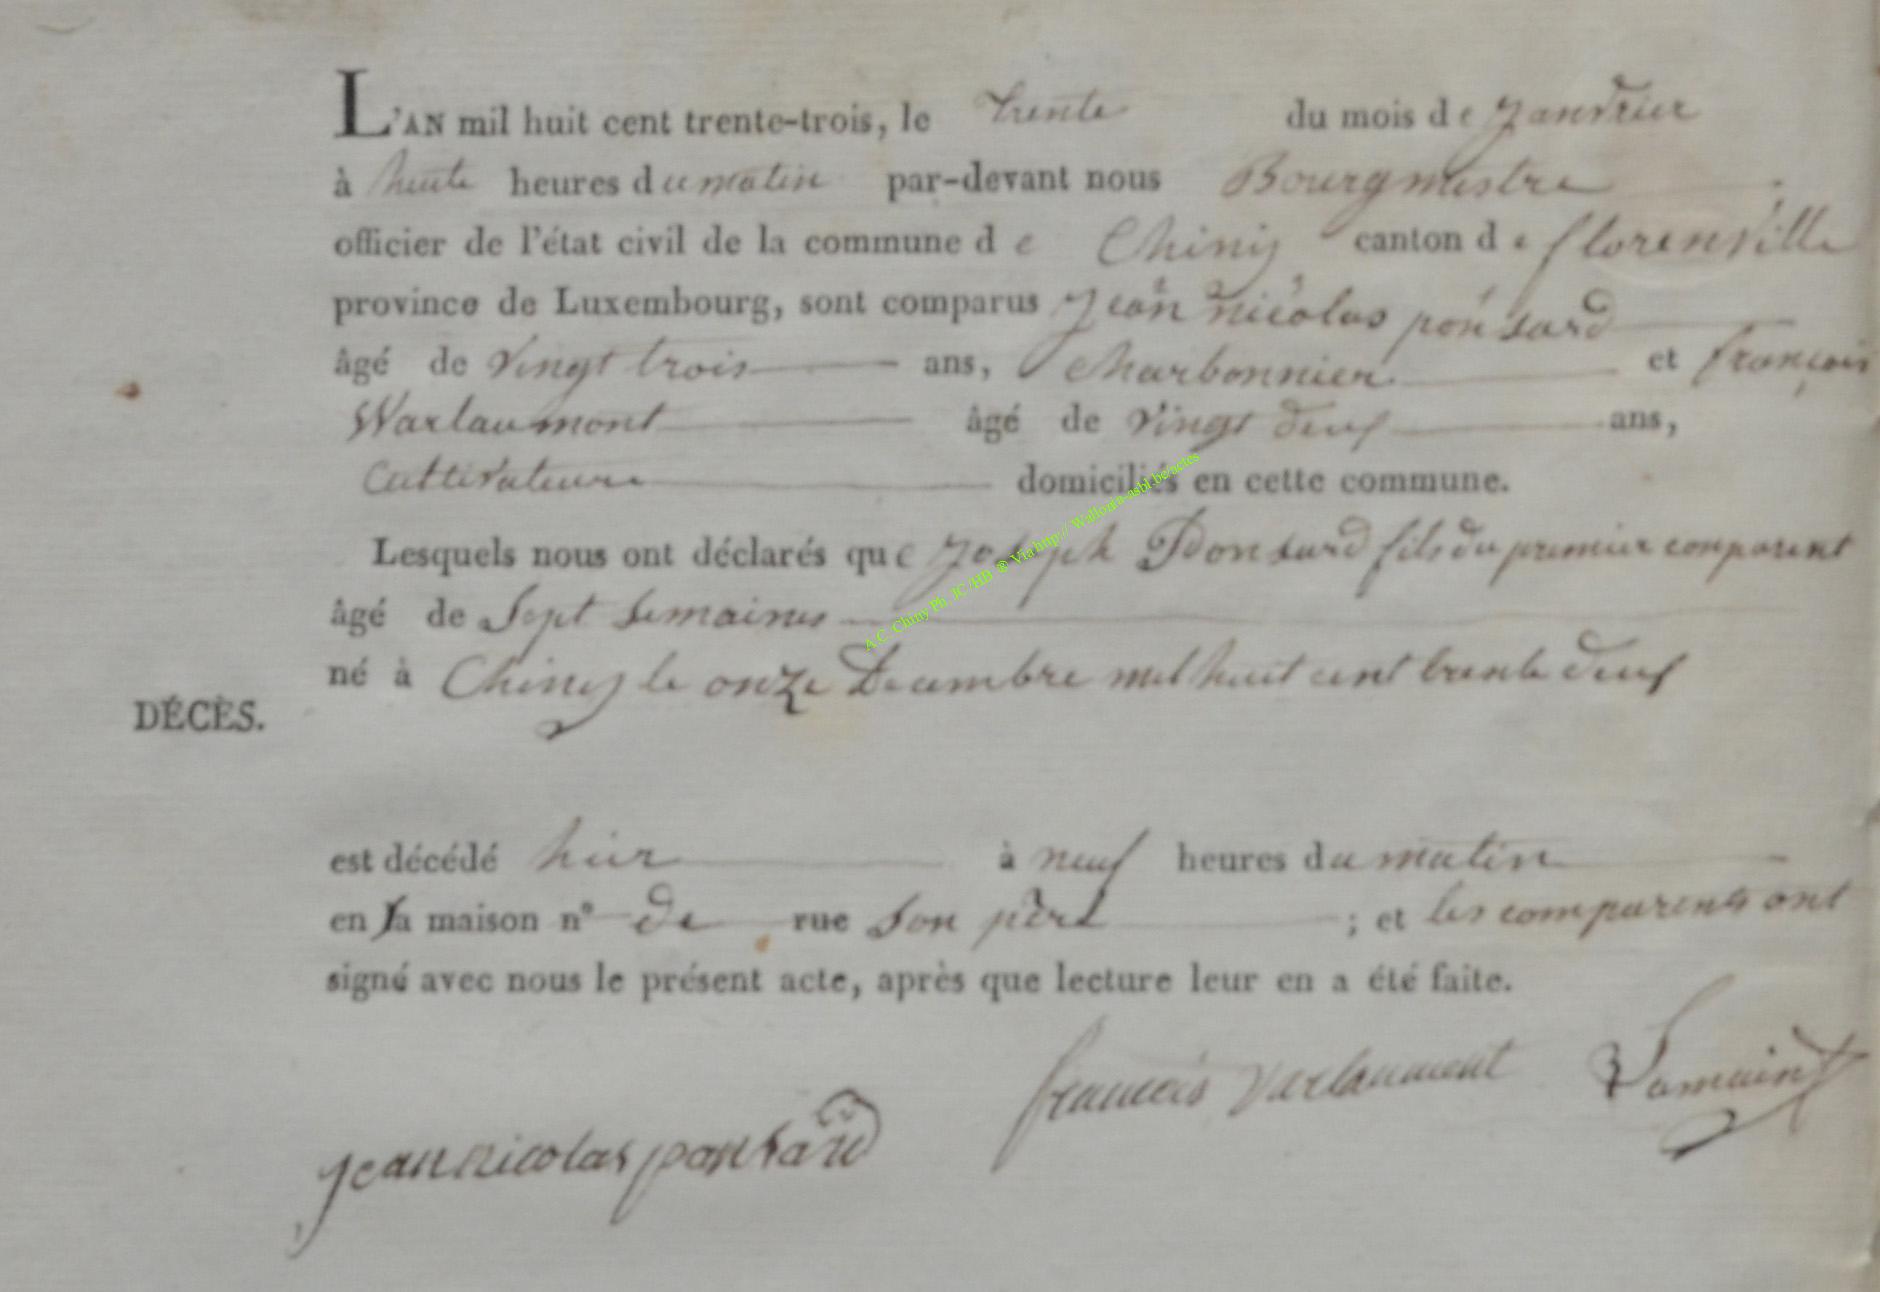 L'AN mil huit cent trente-trois, le trente du mois de Janvrier
à huite heures du matin par-devant nous Bourgmestre
officier de l'état civil de la commune de Chiny canton de florenville
province de Luxembourg, sont comparus Jean nicolas ponsard
âgé de vingt trois ans, charbonnier et françois
Warlaumont âgé de vingt deux ans,
Cultivateur domiciliés en cette commune.
Lesquels nous ont déclarés que Joseph Ponsard fils du premier comparent
âgé de Sept Semaines
né à Chiny le onze Decembre mil huit cent trente deux
DÉCÈS.
est décédé hier à neuf heures du matin
en la maison nº de rue Son père ; et les comparents ont
signé avec nous le présent acte, après que lecture leur en a été faite.
francois varlaumont
jean nicolas ponsard
A.C. Chiny Ph. JC /HB ® Via http:// Wallonia-asbl.be/actes